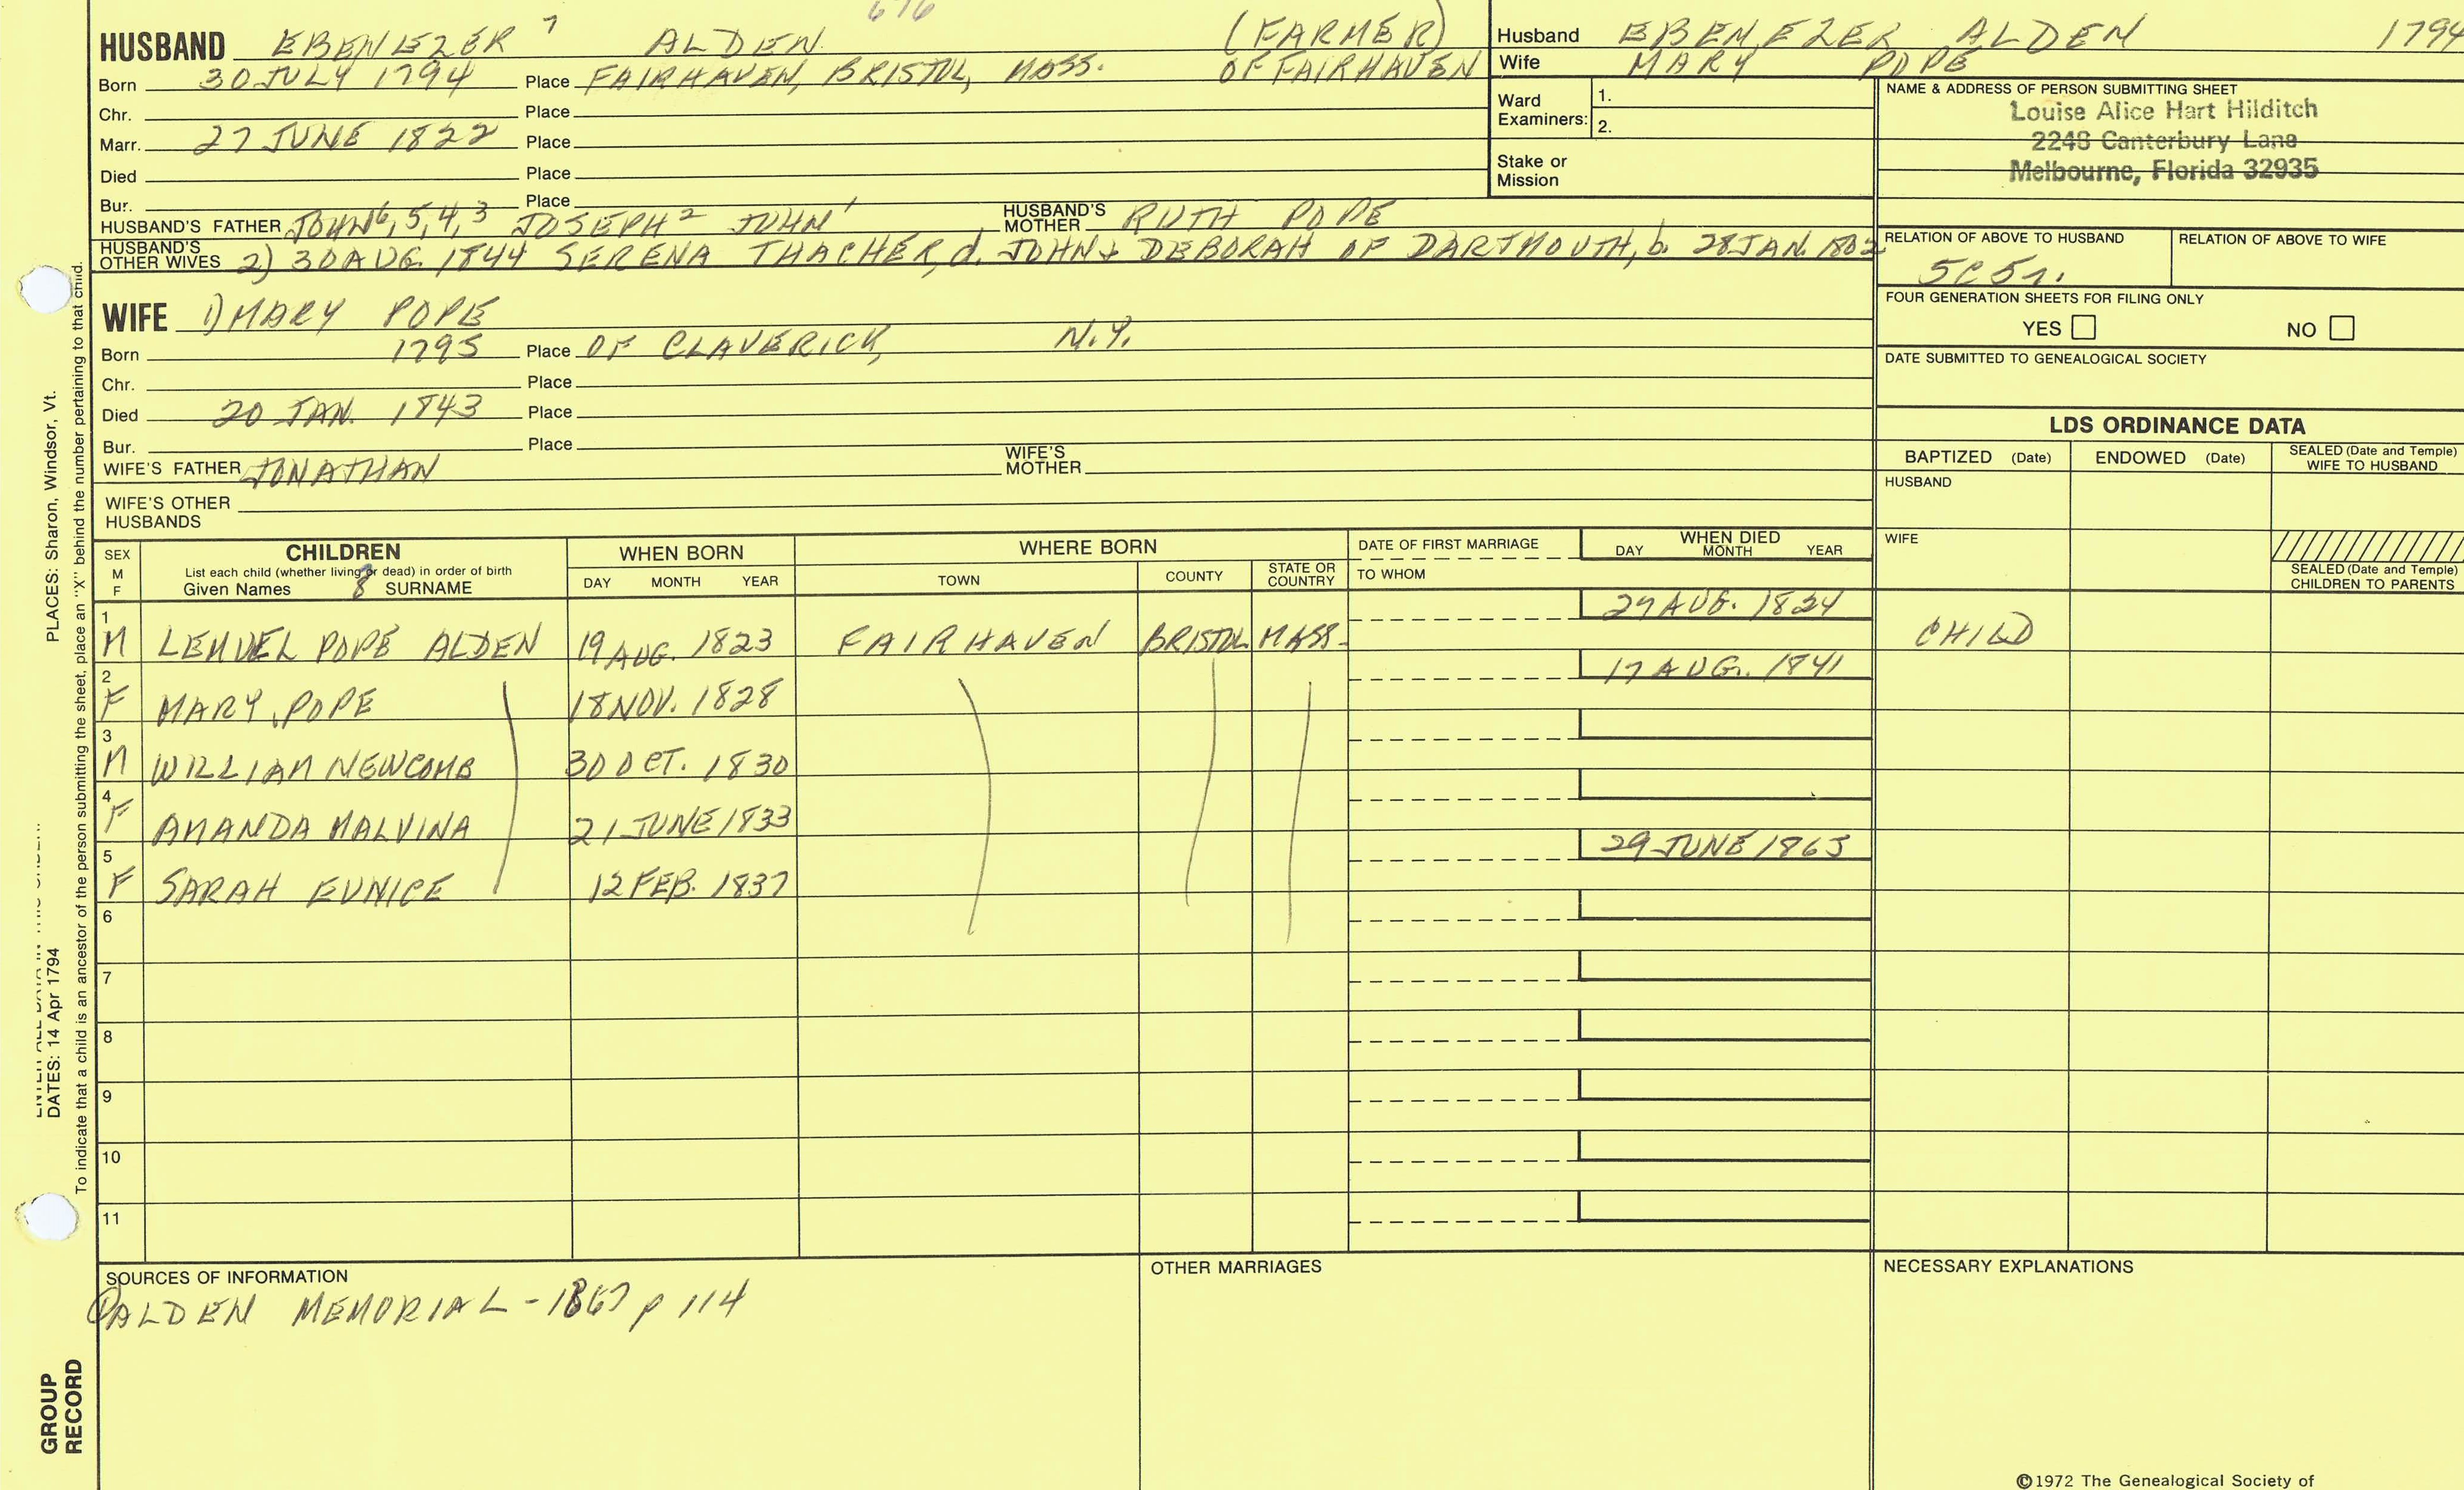 676
HUSBAND EBENEZER 7 ALDEN (FARMER)
Born 30 JULY 1794 Place FAIRHAVEN, BRISTOL, MASS. OF FAIRHAVEN
Chr. Place
Marr. 27 JUNE 1822 Place
Died Place
Bur. Place
HUSBAND'S FATHER JOHN 6, 5, 4, 3 JOSEPH 2 JOHN 1 HUSBAND'S MOTHER RUTH POPE
HUSBAND'S OTHER WIVES 2) 30 AUG. 1844 SERENA THACHER, d. JOHN & DEBORAH OF DARTMOUTH, b. 28 JAN. 1802
WIFE 1) MARY POPE
Born 1795 Place OF CLAVERICK, N.Y.
Chr. Place
Died 20 JAN. 1843 Place
Bur. Place
WIFE'S FATHER JONATHAN WIFE'S MOTHER
WIFE'S OTHER HUSBANDS
Husband EBENEZER ALDEN 1794
Wife MARY POPE
Ward Examiners: 1.
2.
Stake or Mission
NAME & ADDRESS OF PERSON SUBMITTING SHEET
Louise Alice Hart Hilditch
2248 Canterbury Lane
Melbourne, Florida 32935
RELATION OF ABOVE TO HUSBAND RELATION OF ABOVE TO WIFE
5C5r.
FOUR GENERATION SHEETS FOR FILING ONLY
YES NO
DATE SUBMITTED TO GENEALOGICAL SOCIETY
LDS ORDINANCE DATA
BAPTIZED (Date) ENDOWED (Date) SEALED (Date and Temple) WIFE TO HUSBAND
HUSBAND
WIFE
SEALED (Date and Temple) CHILDREN TO PARENTS
SEX M F CHILDREN WHEN BORN WHERE BORN DATE OF FIRST MARRIAGE WHEN DIED
List each child (whether living or dead) in order of birth
Given Names 8 SURNAME DAY MONTH YEAR TOWN COUNTY STATE OR COUNTRY TO WHOM DAY MONTH YEAR
1 M LEMUEL POPE ALDEN 19 AUG. 1823 FAIRHAVEN BRISTOL MASS. 29 AUG. 1824 CHILD
2 F MARY POPE 18 NOV. 1828 17 AUG. 1841
3 M WILLIAM NEWCOMB 30 OCT. 1830
4 F AMANDA MALVINA 21 JUNE 1833
5 F SARAH EUNICE 12 FEB. 1837 29 JUNE 1863
6
7
8
9
10
11
SOURCES OF INFORMATION
① ALDEN MEMORIAL - 1867 p 114
OTHER MARRIAGES
NECESSARY EXPLANATIONS
©1972 The Genealogical Society of
DATES: 14 Apr 1794 PLACES: Sharon, Windsor, Vt.
To indicate that a child is an ancestor of the person submitting the sheet, place an "X" behind the number pertaining to that child.
GROUP
RECORD